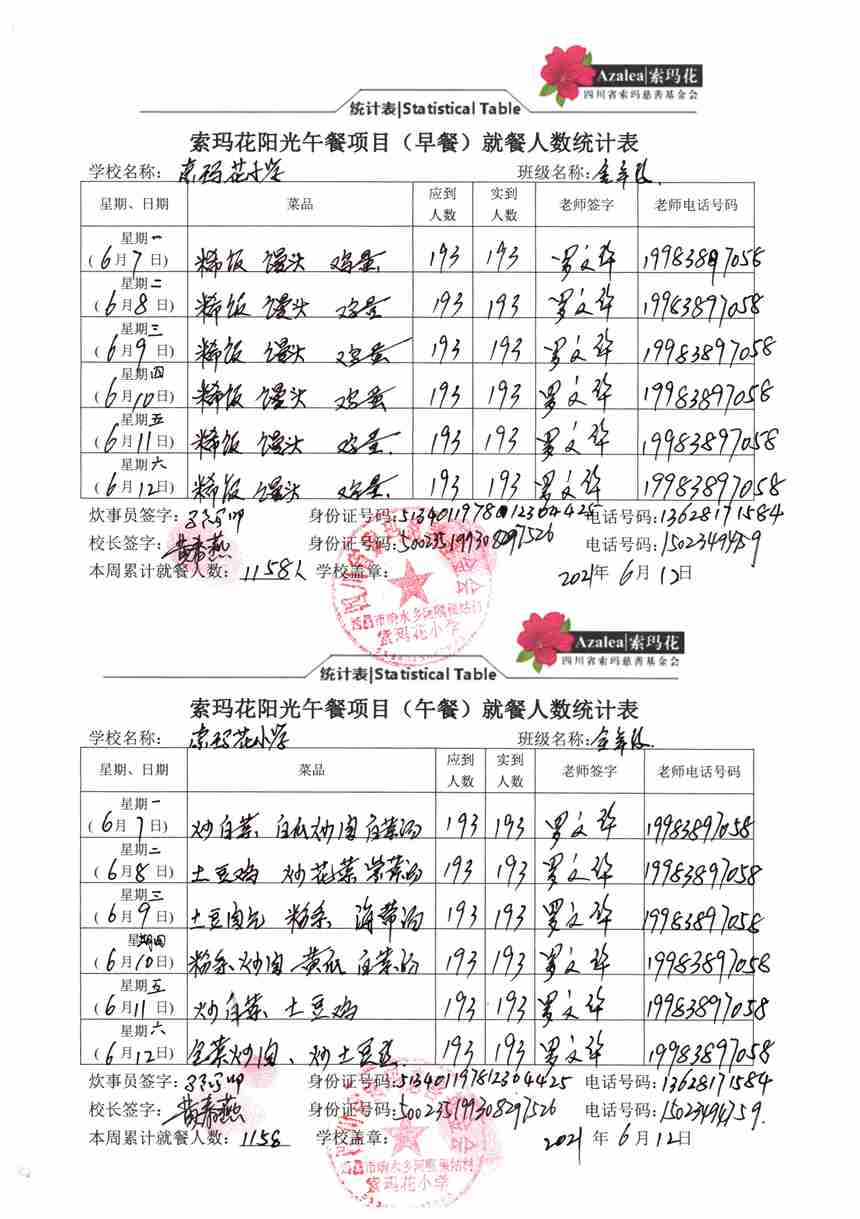 Azalea|索玛花
四川省索玛慈善基金会
统计表|Statistical Table
索玛花阳光午餐项目（早餐）就餐人数统计表
学校名称： 索玛花小学 班级名称：全年段
星期、日期 菜品 应到人数 实到人数 老师签字 老师电话号码
星期一
(6月7日) 稀饭 馒头 鸡蛋 193 193 罗文华 19983897058
星期二
(6月8日) 稀饭 馒头 鸡蛋 193 193 罗文华 19983897058
星期三
(6月9日) 稀饭 馒头 鸡蛋 193 193 罗文华 19983897058
星期四
(6月10日) 稀饭 馒头 鸡蛋 193 193 罗文华 19983897058
星期五
(6月11日) 稀饭 馒头 鸡蛋. 193 193 罗文华 19983897058
星期六
(6月12日) 稀饭 馒头 鸡蛋. 193 193 罗文华 19983897058
炊事员签字： 身份证号码： 电话号码：13628171584
校长签字：黄春燕 身份证号码：500235199308297526 电话号码：15023494759
本周累计就餐人数：1158人 学校盖章： 2021年6月12日
西昌市响水乡
索玛花小学
Azalea|索玛花
四川省索玛慈善基金会
统计表|Statistical Table
索玛花阳光午餐项目（午餐）就餐人数统计表
学校名称： 索玛花小学 班级名称：全年段.
星期、日期 菜品 应到人数 实到人数 老师签字 老师电话号码
星期一
(6月7日) 炒白菜. 白瓜炒肉 白菜汤 193 193 罗文华 19983897058
星期二
(6月8日) 土豆鸡 炒花菜 紫菜汤 193 193 罗文华 19983897058
星期三
(6月9日) 土豆肉 粉条. 海带汤 193 193 罗文华 19983897058
星期四
(6月10日) 粉条炒肉 黄瓜 白菜汤 193 193 罗文华 19983897058
星期五
(6月11日) 炒白菜. 土豆鸡 193 193 罗文华 19983897058
星期六
(6月12日) 炒肉、炒土豆丝 193 193 罗文华 19983897058
炊事员签字： 身份证号码：513401197812304425 电话号码：13628171584
校长签字：黄春燕 身份证号码：500235199308297526 电话号码：15023494759.
本周累计就餐人数：1158 学校盖章： 2021年6月12日
西昌市响水乡
索玛花小学